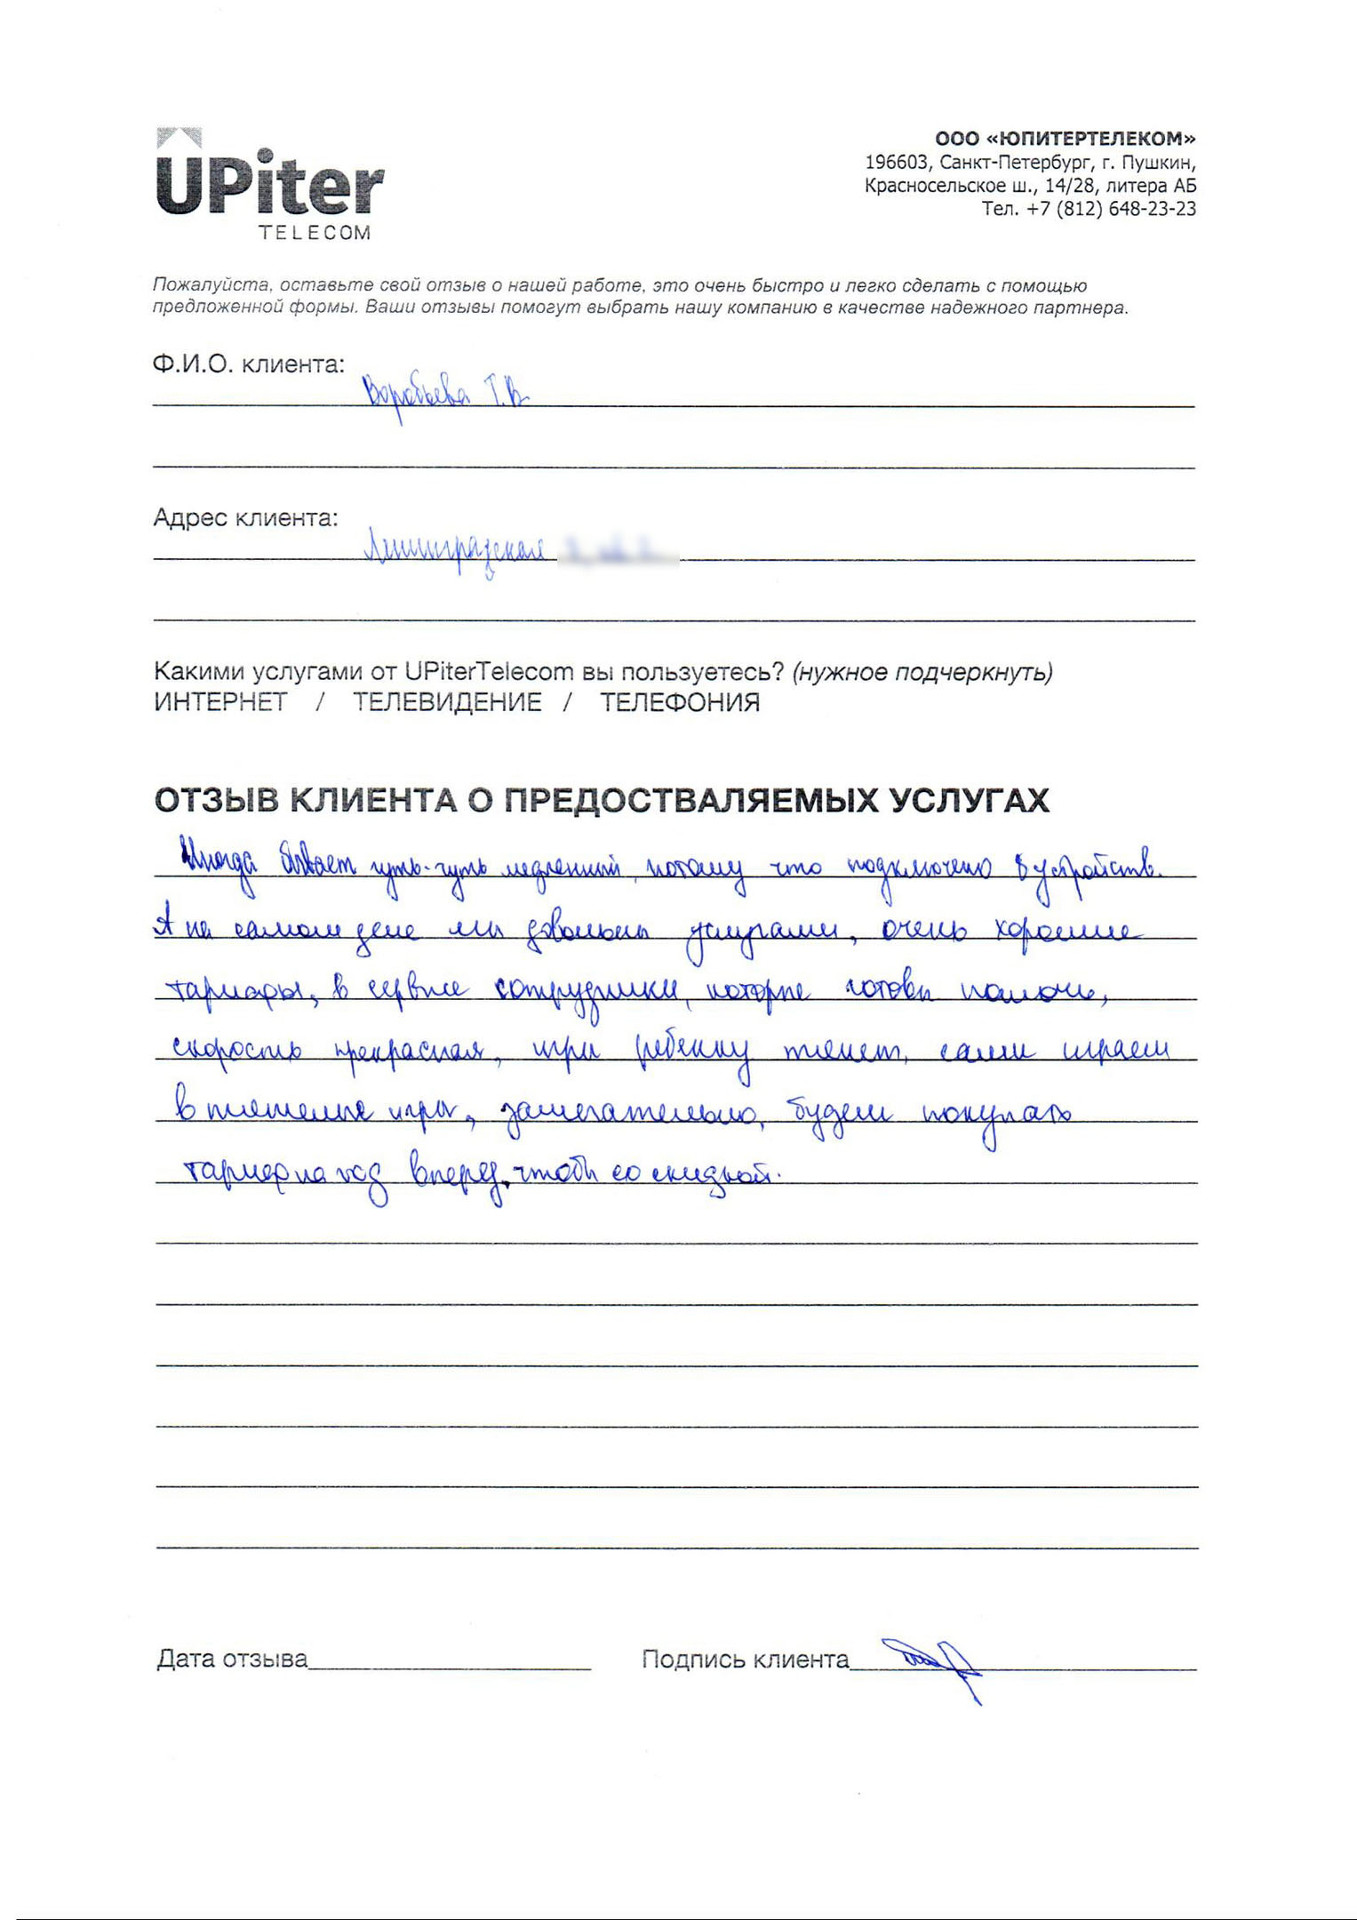 UPiter
TELECOM
ООО «ЮПИТЕРТЕЛЕКОМ»
196603, Санкт-Петербург, г. Пушкин,
Красносельское ш., 14/28, литера АБ
Тел. +7 (812) 648-23-23
Пожалуйста, оставьте свой отзыв о нашей работе, это очень быстро и легко сделать с помощью
предложенной формы. Ваши отзывы помогут выбрать нашу компанию в качестве надежного партнера.
Ф.И.О. клиента:
Воробьева Т.В
Адрес клиента:
Ленинградская
Какими услугами от UPiterTelecom вы пользуетесь? (нужное подчеркнуть)
ИНТЕРНЕТ / ТЕЛЕВИДЕНИЕ / ТЕЛЕФОНИЯ
ОТЗЫВ КЛИЕНТА О ПРЕДОСТВАЛЯЕМЫХ УСЛУГАХ
Иногда бывает чуть-чуть медленный, потому что подключено 8 устройств.
А на самом деле мы довольны услугами, очень хорошие
тарифы, в сервисе сотрудники, которые готовы помочь,
скорость прекрасная, игры ребенку тянет, сами играем
в тяжелые игры, замечательно, будем покупать
тариф на год вперед, чтобы со скидкой.
Дата отзыва
Подпись клиента